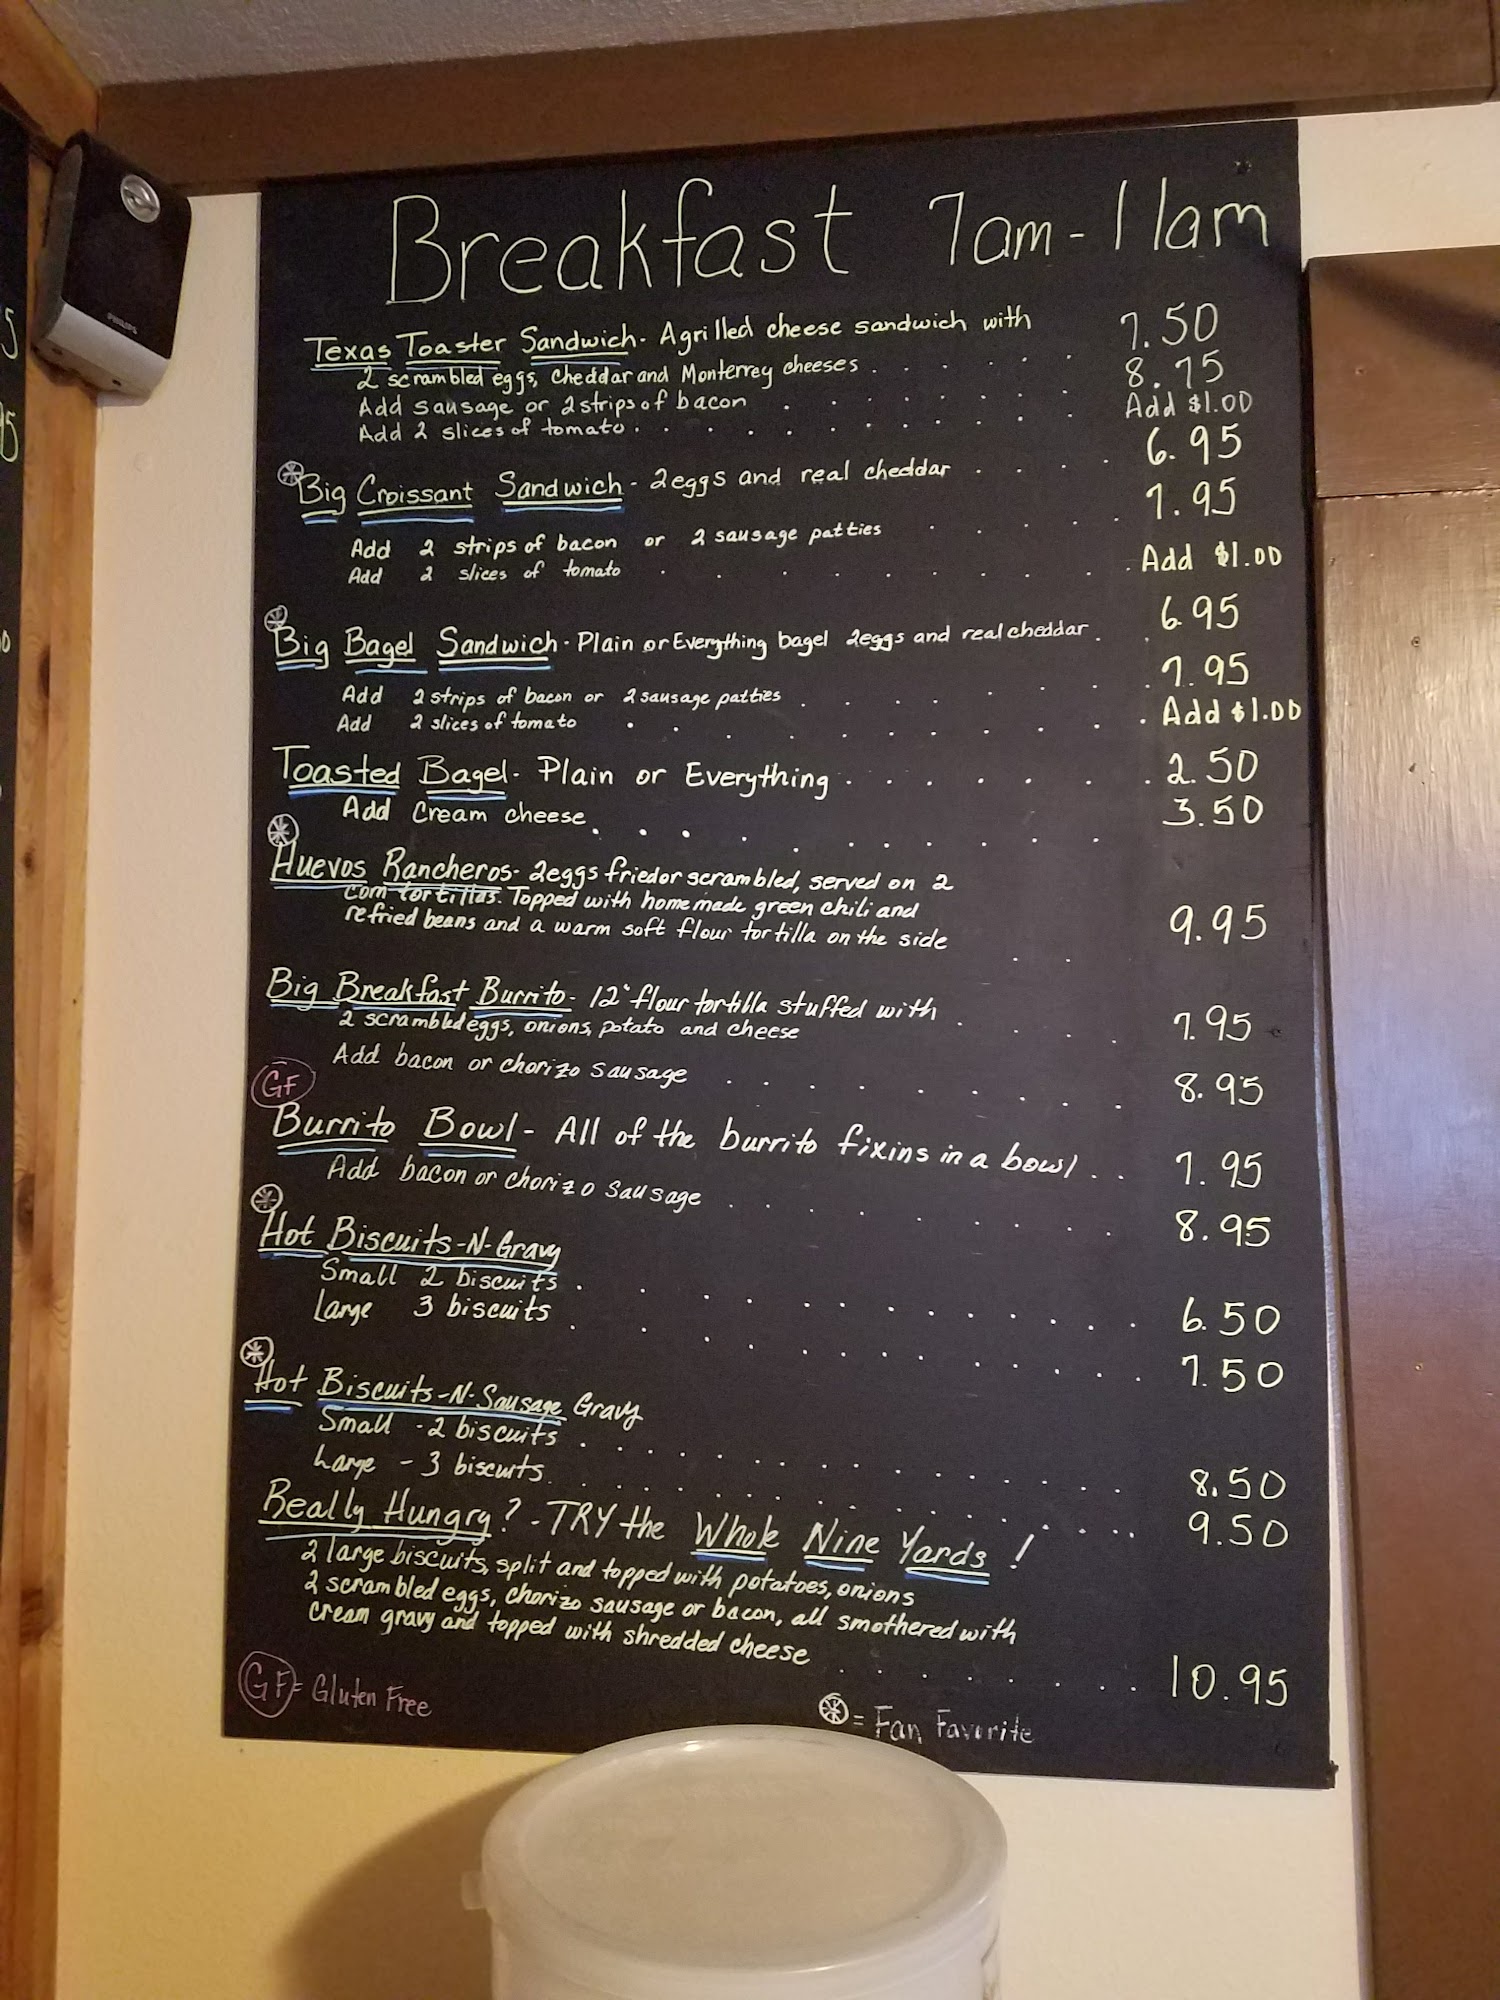 Breakfast 7am-11am
Texas Toaster Sandwich - A grilled cheese sandwich with 7.50
2 scrambled eggs, cheddar and Monterrey cheeses . . . . . 8.75
Add sausage or 2 strips of bacon . . . . . . . Add $1.00
Add 2 slices of tomato . . . . . . . . .
Big Croissant Sandwich - 2 eggs and real cheddar . . . . 6.95
Add 2 strips of bacon or 2 sausage patties . . . . . 7.95
Add 2 slices of tomato . . . . . . . . . Add $1.00
Big Bagel Sandwich - Plain or Everything bagel 2 eggs and real cheddar . . 6.95
Add 2 strips of bacon or 2 sausage patties . . . . . . . 7.95
Add 2 slices of tomato . . . . . . . . . . Add $1.00
Toasted Bagel - Plain or Everything . . . . . . . 2.50
Add Cream cheese . . . . . . . . . 3.50
Huevos Rancheros - 2 eggs fried or scrambled, served on 2
corn tortillas. Topped with homemade green chili and
refried beans and a warm soft flour tortilla on the side . . 9.95
Big Breakfast Burrito - 12" flour tortilla stuffed with
2 scrambled eggs, onions, potato and cheese . . . . 7.95
Add bacon or chorizo sausage . . . . . . . . 8.95
GF
Burrito Bowl - All of the burrito fixins in a bowl . . 7.95
Add bacon or chorizo sausage . . . . . . . . 8.95
Hot Biscuits-N-Gravy
Small 2 biscuits . . . . . . . . . . 6.50
Large 3 biscuits . . . . . . . . . . 7.50
Hot Biscuits-N-Sausage Gravy
Small - 2 biscuits . . . . . . . . . . 8.50
Large - 3 biscuits . . . . . . . . . . 9.50
Really Hungry? - TRY the Whole Nine Yards!
2 large biscuits, split and topped with potatoes, onions
2 scrambled eggs, chorizo sausage or bacon, all smothered with
cream gravy and topped with shredded cheese . . . . . . . . 10.95
GF = Gluten Free
= Fan Favorite
PHILIPS